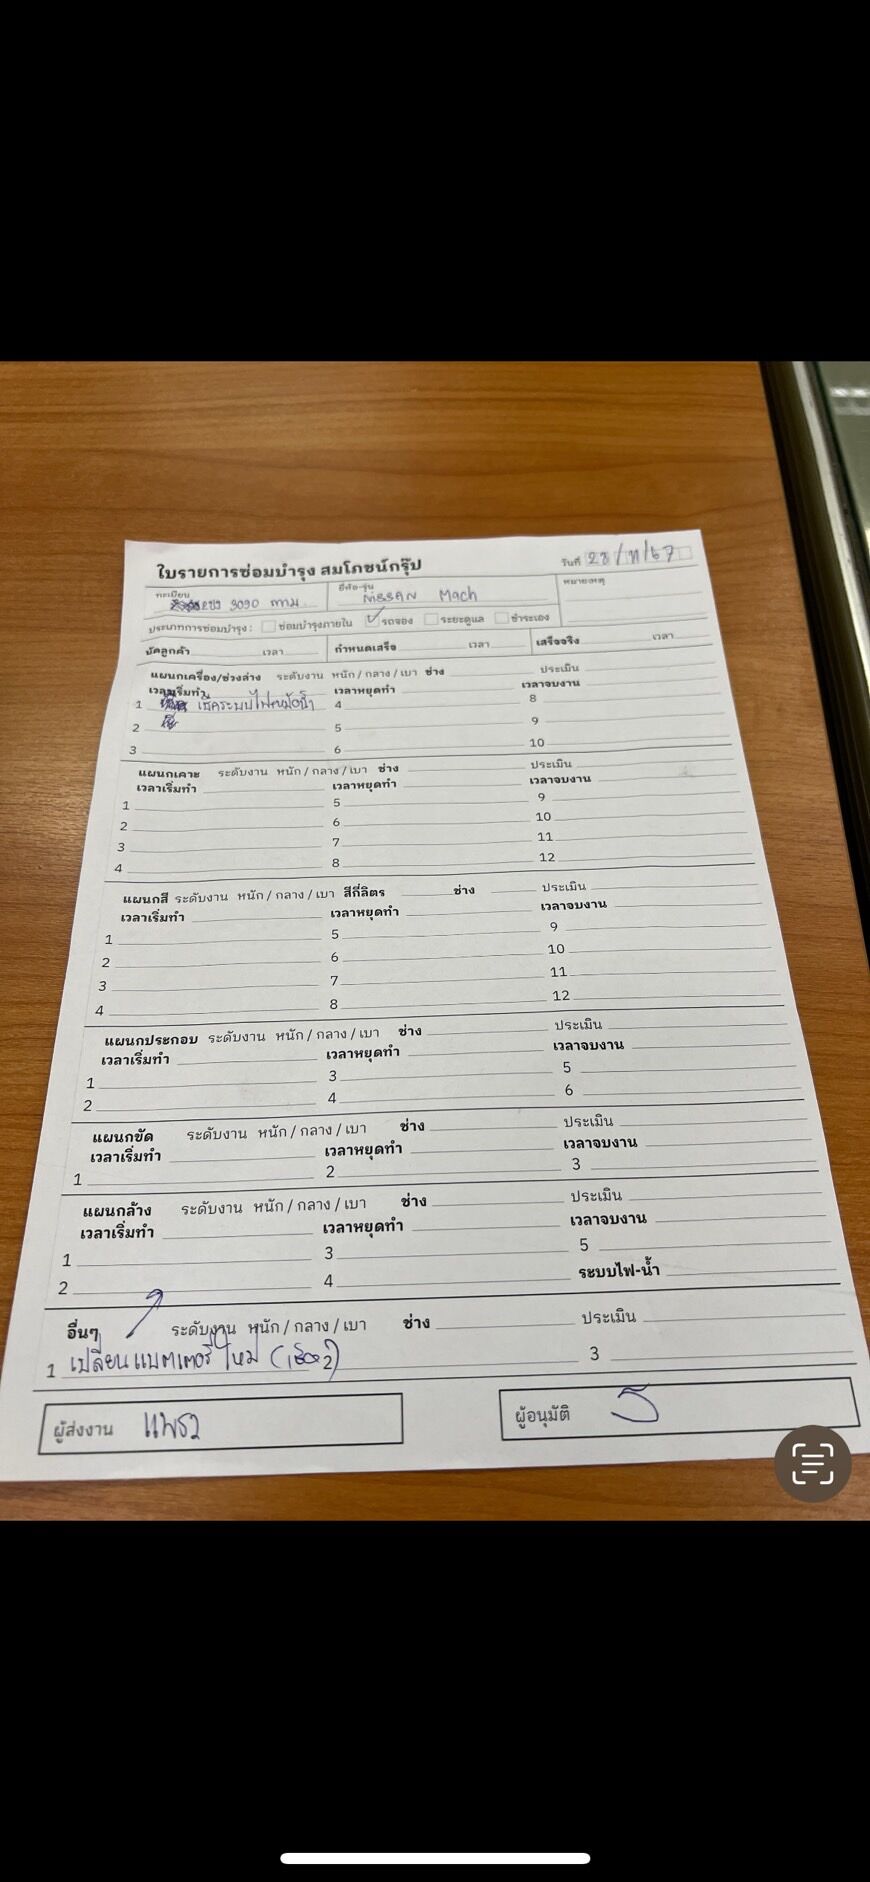 ใบรายการซ่อมบำรุง สมโภชน์กรุ๊ป
วันที่ 28/11/67
ทะเบียน 3090 กทม
ยี่ห้อ-รุ่น NISSAN Mach
หมายเหตุ
ประเภทการซ่อมบำรุง : ซ่อมบำรุงภายใน รถจอง ระยะดูแล ชำระเอง
นัดลูกค้า เวลา กำหนดเสร็จ เวลา เสร็จจริง เวลา
แผนกเครื่อง/ช่วงล่าง ระดับงาน หนัก / กลาง / เบา ช่าง ประเมิน
เวลาเริ่มทำ เวลาหยุดทำ เวลาจบงาน
1 เช็คระบบไฟหม้อน้ำ 4 8
2 5 9
3 6 10
แผนกเคาะ ระดับงาน หนัก / กลาง / เบา ช่าง ประเมิน
เวลาเริ่มทำ เวลาหยุดทำ เวลาจบงาน
1 5 9
2 6 10
3 7 11
4 8 12
แผนกสี ระดับงาน หนัก / กลาง / เบา สีกี่ลิตร ช่าง ประเมิน
เวลาเริ่มทำ เวลาหยุดทำ เวลาจบงาน
1 5 9
2 6 10
3 7 11
4 8 12
แผนกประกอบ ระดับงาน หนัก / กลาง / เบา ช่าง ประเมิน
เวลาเริ่มทำ เวลาหยุดทำ เวลาจบงาน
1 3 5
2 4 6
แผนกขัด ระดับงาน หนัก / กลาง / เบา ช่าง ประเมิน
เวลาเริ่มทำ เวลาหยุดทำ เวลาจบงาน
1 2 3
แผนกล้าง ระดับงาน หนัก / กลาง / เบา ช่าง ประเมิน
เวลาเริ่มทำ เวลาหยุดทำ เวลาจบงาน
1 3 5
2 4 ระบบไฟ-น้ำ
อื่นๆ ระดับงาน หนัก / กลาง / เบา ช่าง ประเมิน
1 เปลี่ยนแบตเตอรี่ใหม่ 3
ผู้ส่งงาน แพรว
ผู้อนุมัติ